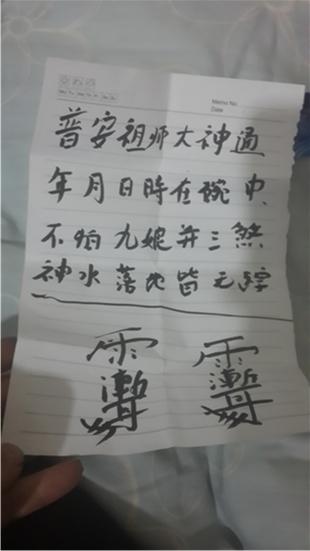 Memo No.
Date
普安祖师大神通
年月日時在碗中
不怕九娘并三煞
神水落地皆无踪